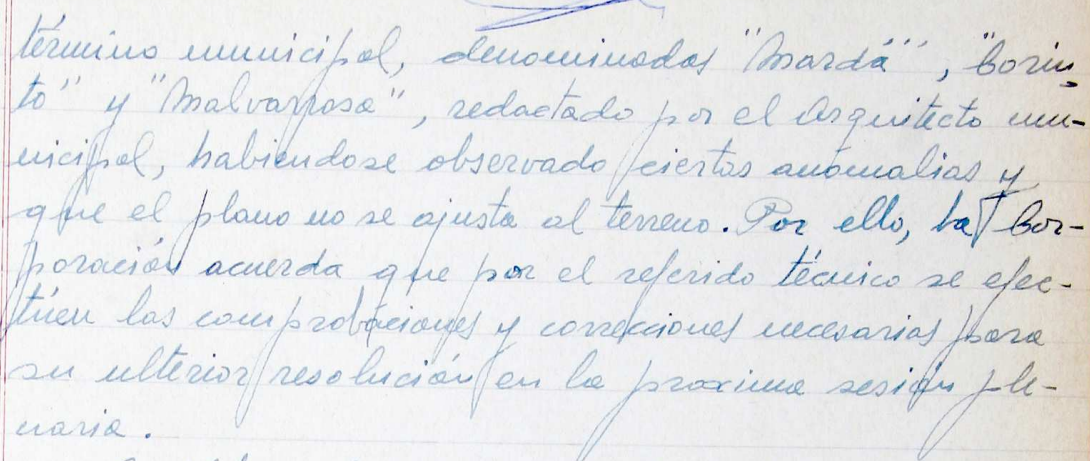 término municipal, denominadas "Mardá", "Corin-
to" y "Malvarrosa", redactado por el Arquitecto mu-
nicipal, habiendose observado ciertas anomalias y
que el plano no se ajusta al terreno. Por ello, la Cor-
poración acuerda que por el referido técnico se efec-
túen las comprobaciones y correcciones necesarias para
su ulterior resolución en la proxima sesión ple-
naria.